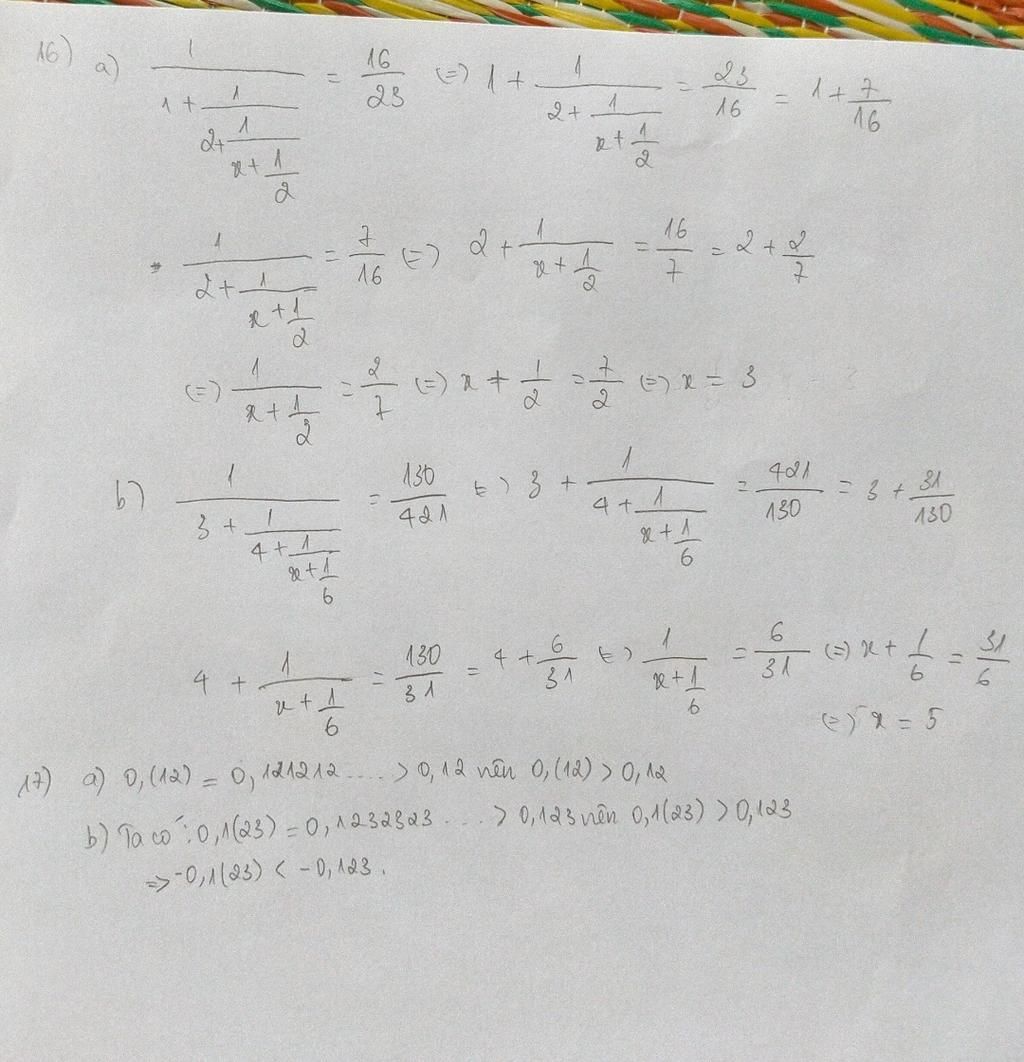 16) a) 1/(1+1/(2+1/(x+1/2))) = 16/23 (=) 1 + 1/(2+1/(x+1/2)) = 23/16 = 1+7/16
1/(2+1/(x+1/2)) = 7/16 (=) 2 + 1/(x+1/2) = 16/7 = 2 + 2/7
(=) 1/(x+1/2) = 2/7 (=) x + 1/2 = 7/2 (=) x = 3
b) 1/(3+1/(4+1/(x+1/6))) = 130/421 (=) 3 + 1/(4+1/(x+1/6)) = 421/130 = 3 + 31/130
4 + 1/(x+1/6) = 130/31 = 4 + 6/31 (=) 1/(x+1/6) = 6/31 (=) x + 1/6 = 31/6
(=) x = 5
17) a) 0,(12) = 0,121212.... > 0,12 nên 0,(12) > 0,12
b) Ta có: 0,1(23) = 0,1232323... > 0,123 nên 0,1(23) > 0,123
=> -0,1(23) < -0,123.